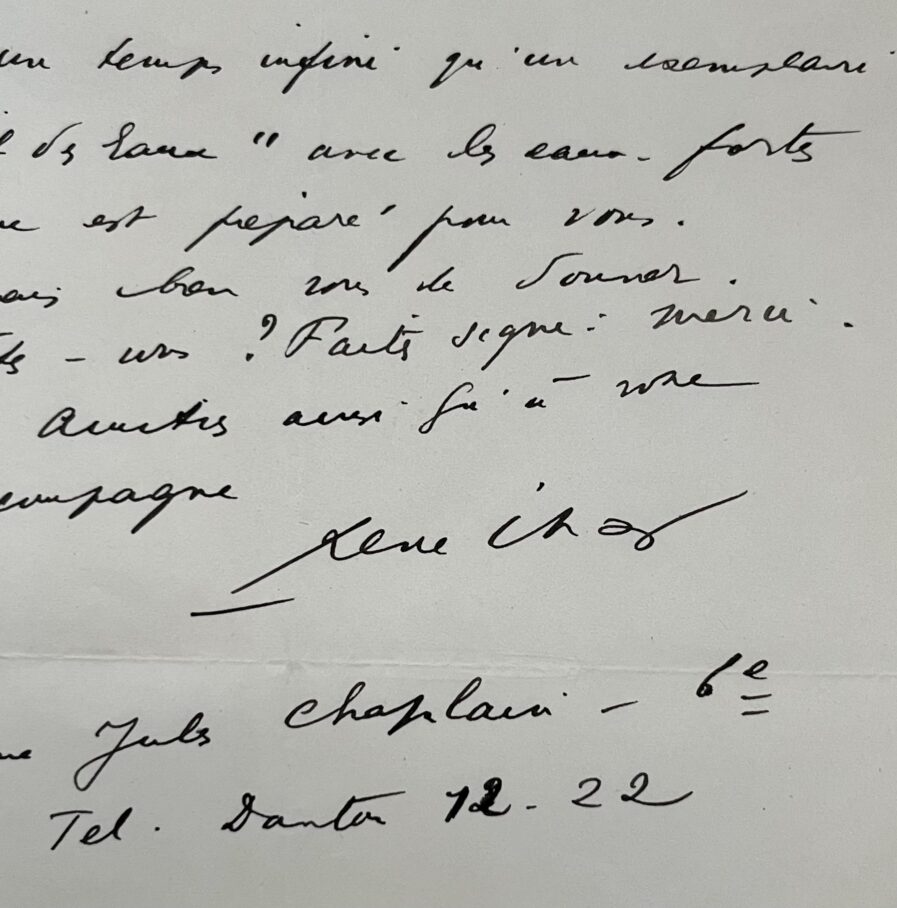 un temps infini qu'un exemplaire
des Eaux" avec les eaux-fortes
est préparé pour vous.
bon vous le donner.
- vous ? Faites signe : merci.
Amitiés ainsi qu'à votre
compagne
René Char
Jules Chaplain - 6e
Tel. Danton 12-22